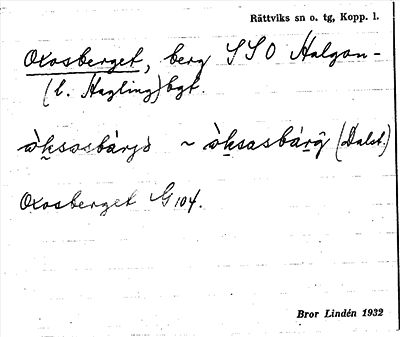 Rättviks sn o. tg, Kopp. l.
Oxosberget, berg SSO Halgon-
(l. Hagling)bgt.
òksosbárjò ~ òksasbárĝ (Dalst.)
Oxosberget G 104.
Bror Lindén 1932